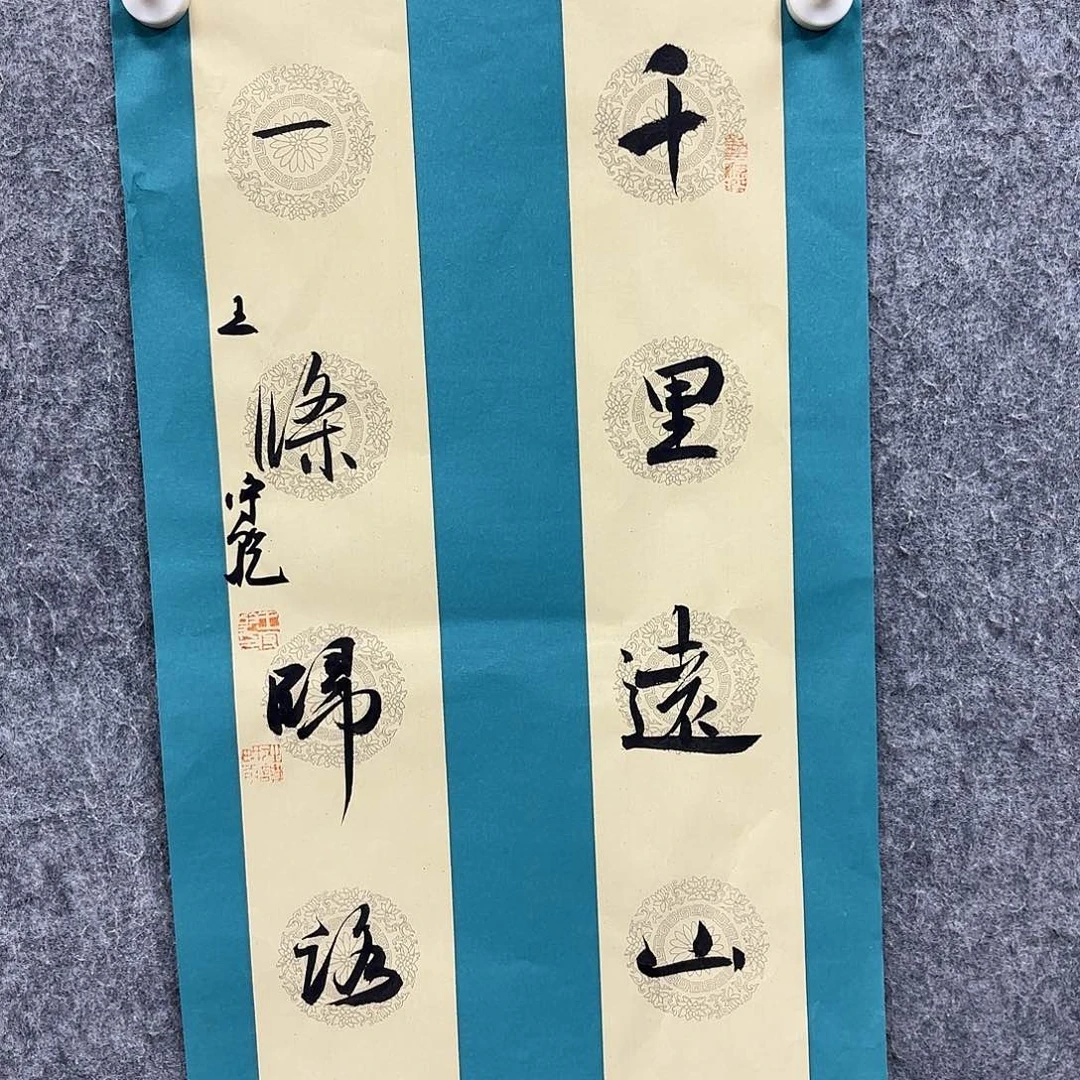 千里遠山
一條歸路
王守